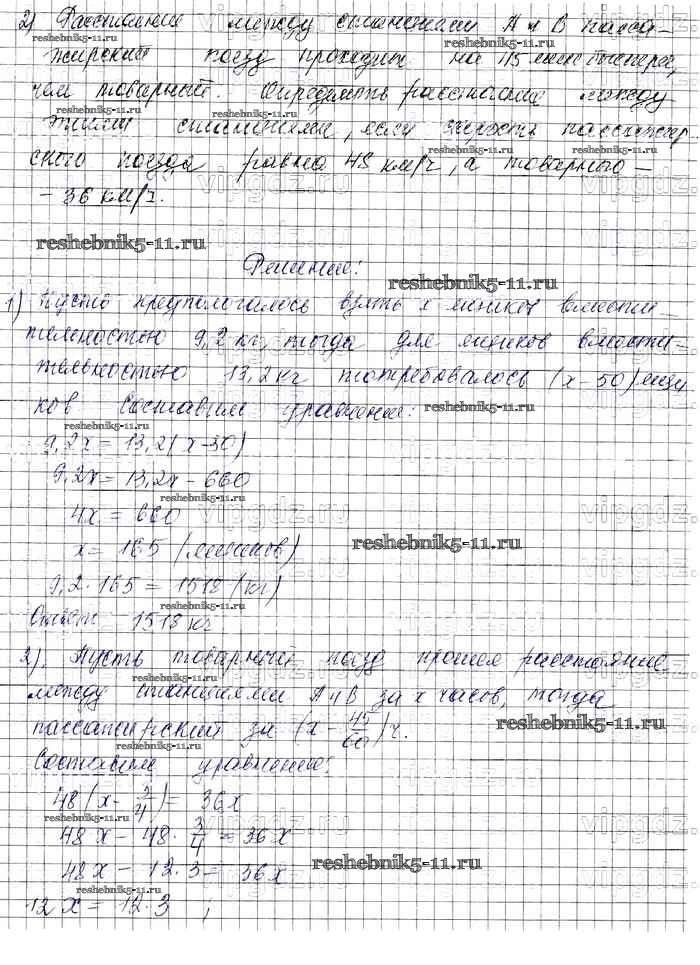 2) Расстояние между станциями А и В пасса-
жирский поезд проходит на 45 мин быстрее,
чем товарный. Определить расстояние между
этими станциями, если скорость пассажир
ского поезда равна 48 км/ч, а товарного –
– 36 км/ч.
Решение:
1) Пусть предпологалось взять х ящиков вмести-
тельностью 9,2 кг, тогда для ящиков вмести-
тельностью 13,2 кг потребовалось (х – 50) ящи
ков Составим уравнение:
9,2х = 13,2(х–50)
9,2х = 13,2х – 660
4х = 660
х = 165 (ящиков)
9,2 · 165 = 1518 (кг)
Ответ 1518 кг
2). Пусть товарный поезд прошел расстояние
между станциями А и В за х часов, тогда
пассажирский за (х 45/60) ч.
Составим уравнение:
48(х – 3/4) = 36х
48х – 48 · 3/4 = 36х
48х – 12·3 = 36х
12х = 12·3 ;
reshebnik5-11.ru
vipgdz.ru